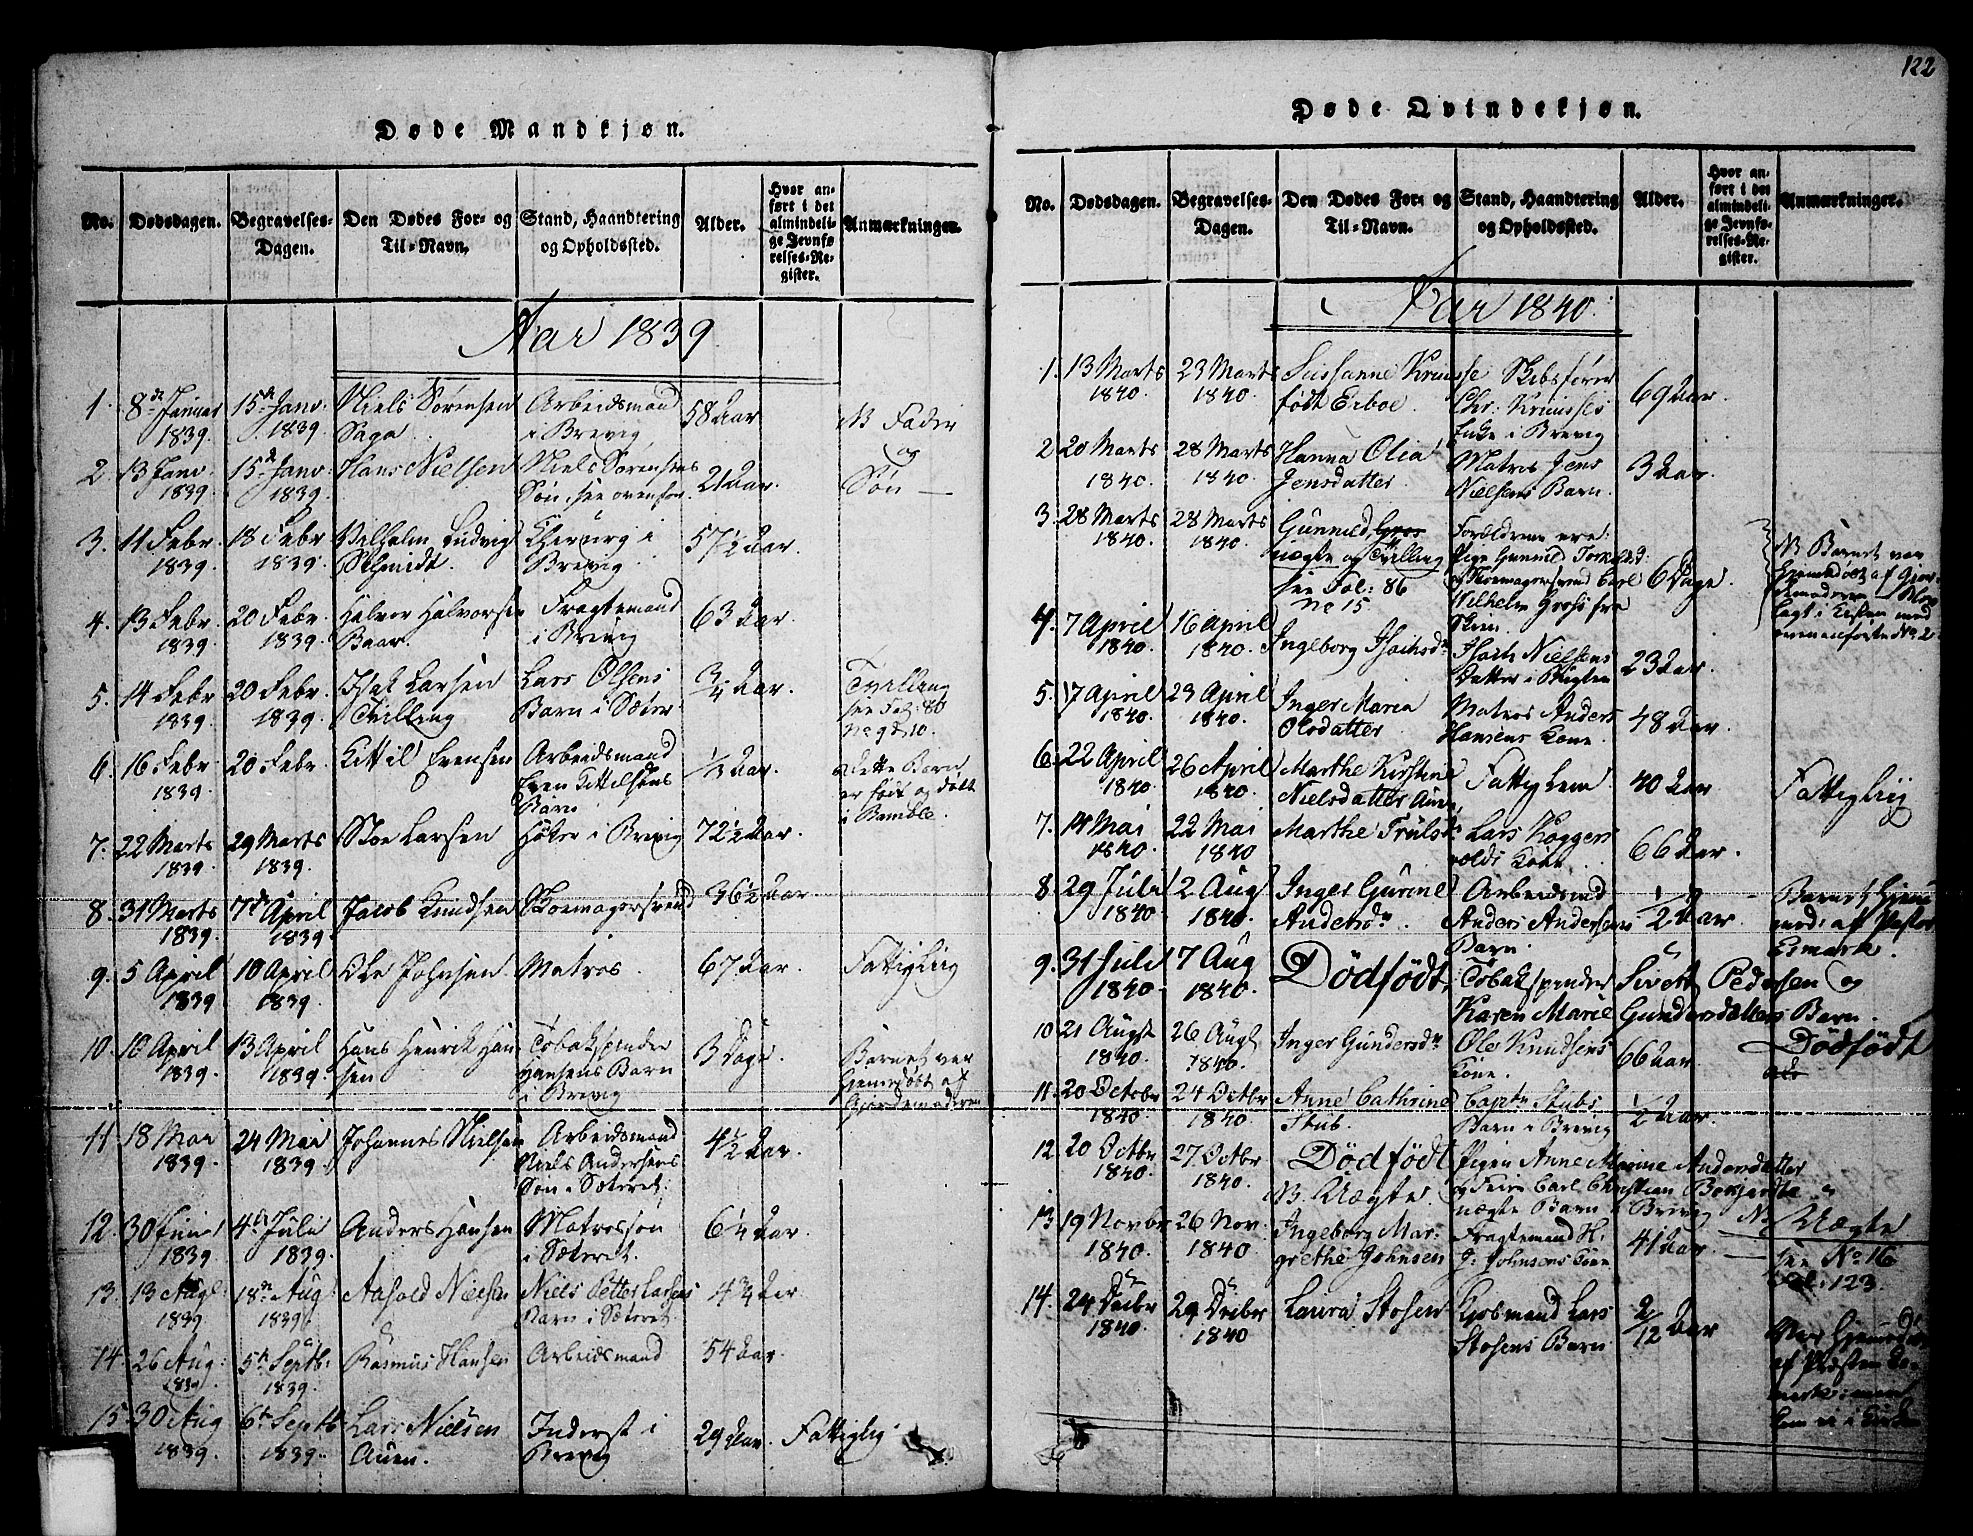 Døde Mandkjøn.
No. Dødsdagen. Begravelses-Dagen. Den Dødes For- og Til-Navn. Stand, Haandtering og Opholdssted. Alder. Hvor anført i det almindelige Jevnførelses-Register. Anmærkninger.
Aar 1839
1. 8de Januar 1839. 15de Janv: 1839. Niels Sørensen Saga. Arbeidsmand i Brevig 58 Aar NB Fader og
2. 13 Janv: 1839. 15de Janv: 1839. Hans Nielsen Niels Sørensens Søn, see ovenfor. 21 Aar. Søn —
3. 11 Febr 1839. 18 Febr 1839. Vilhelm Ludvig Schmidt. Chirurg i Brevig. 57½ Aar.
4. 13 Febr. 1839. 20 Febr. 1839. Halvor Halvorsen Baar. Fragtemand i Brevig 63 Aar.
5. 14 Febr 1839. 20 Febr. 1839. Isak Larsen Tvilling Lars Olsens Barn i Sæter 3/4 Aar. Tvilling see Fol: 80 No 9 & 10.
6. 16 Febr 1839. 20 Febr. Kittil Evensen Arbeidsmand Even Kittelsens Barn 1/3 Aar. Dette Barn er født og døbt i Bamble.
7. 22 Marts 1839. 29 Marts 1839. Larsen i Brevig 72½ Aar.
8. 31 Marts 1839. 7de April 1839. Jacob Knudsen Skoemagersvend 36½ Aar
9. 5 April 1839. 10 April 1839. Ole Johnsen Matros. 67 Aar. Fattiglig
10. 10 April 1839. 13 April 1839. Hans Henrik Hansen Tobakspinder Hansens Barn i Brevig 3 Dage. Barnet var Hjemedøbt af Gjordemoderen
11. 18 Mai 1839. 24 Mai 1839. Johannes Nielsen Arbeidsmand Niels Andersens Søn i Sæteret. 4½ Aar.
12. 30 Juni 1839. 4de Juli 1839. Anders Hansen Matrossøn i Sæteret. 6¼ Aar.
13. 13 Aug: 1839. 18de Aug: 1839. Aasold Nielsen Niels Petter Larsens Barn i Sæteret. 4¾ Aar
14. 26 Aug: 1839. 5te Septb: 1839. Rasmus Hansen Arbeidsmand 54 Aar.
15. 30 Aug 1839. 6te Septb 1839. Lars Nielsen Auen. Inderst i Brevig 29 Aar. Fattiglig
122
Døde Qvindekjøn.
No. Dødsdagen. Begravelses-Dagen. Den Dødes For- og Til-Navn. Stand, Haandtering og Opholdssted. Alder. Hvor anført i det almindelige Jevnførelses-Register. Anmærkninger.
Aar 1840.
1. 13 Marts 1840. 23 Marts 1840. Sussanne Kruusse født Eiboe. Skibsfører Chr: Kruusses Enke i Brevig 69 Aar.
2. 20 Marts 1840. 28 Marts 1840. Hanna Olea Jensdatter Matros Jens Nielsens Barn. 3 Aar.
3. 28 Marts 1840. 28 Marts 1840. Gunnild, Gros uægte og Tvilling see Fol: 86 No 15. Forældrene ere: Pige Gunnild Torkelsd: og Skoemagersvend Carl Wilhelm Gross fra Skien. 6 Dage. NB Barnet var Hjemedøbt af Gjordemoderen. Blev lagt i Kisten med ovenanførte No. 2
4. 7 April 1840. 16 April 1840. Ingeborg Isachsdr Isach Nielsens Datter i 23 Aar.
5. 17 April 1840. 23 April 1840. Inger Maria Olsdatter Matros Anders Hansens Kone. 48 Aar.
6. 22 April 1840. 26 April 1840. Marthe Kirstine Nielsdatter Auen Fattiglem 40 Aar Fattiglig
7. 14 Mai 1840. 22 Mai 1840 Marthe Trulsdr Lars Kone. 66 Aar.
8. 29 Juli 1840. 2 Aug 1840. Inger Gurine Andersdr. Arbeidsmd Anders Andersens Barn. 1/2 Aar. Barnet Hjemmed: af Pastor Esmark.
9. 31 Juli 1840. 7 Aug 1840. Dødfødt. Tobakspinder Sivert Pedersen og Karen Marie Gundersdatters Barn. Dødfødt
10. 21 Augst 1840. 26 Augst 1840. Inger Gundersdr Ole Knudsens Kone. 66 Aar.
11. 20 Octobr 1840. 24 Octbr 1840. Anne Cathrine Stub. Captn Stubs Barn i Brevig 1/2 Aar.
12. 20 Octbr 1840. 27 Octbr 1840. Dødfødt NB. Uægte. Pigen Anne Marine Andersdatter og Carl Christian uægte Barn i Brevig NB Uægte see No 16 Fol: 123.
13. 19 Novbr 1840. 26 Nov. 1840 Ingeborg Margrethe Johnsen Fragtemand H: J: Johnsens Kone 41 Aar
14. 24 Decbr 1840. 29 Decbr 1840 Laura Stosen Kjøbmand Lars Stosens Barn 2/12 Aar Var Hjemmedøbt af Præsten Esmark